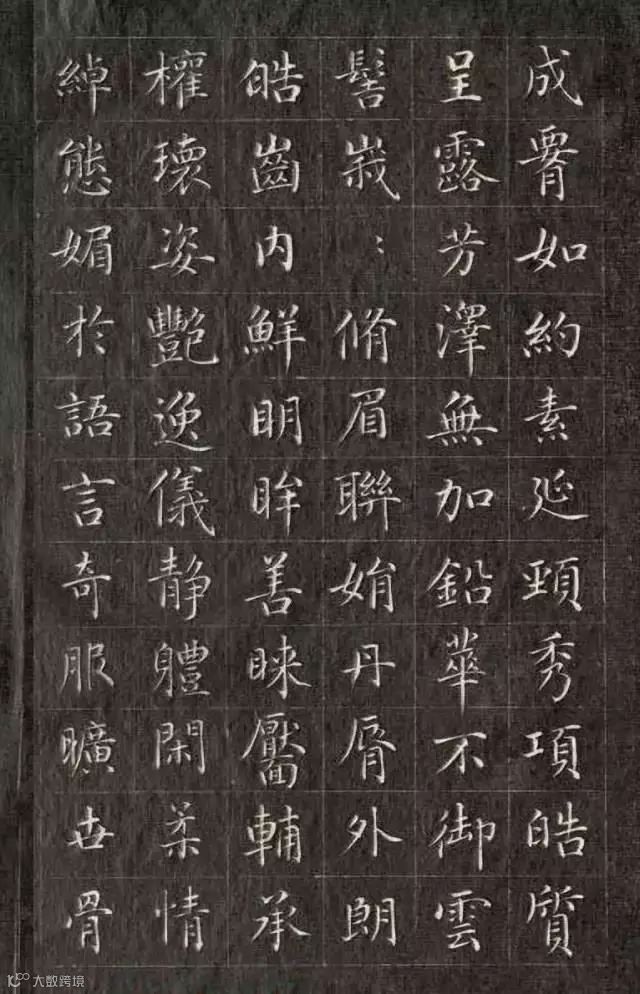 成㬱如約素延頸秀項皓質
呈露芳澤無加鉛華不御雲
髻峩〻脩眉聯娟丹脣外朗
皓齒内鮮明眸善睞靨輔承
權瓌姿艷逸儀静軆閑柔情
綽態媚於語言奇服曠世骨
大数跨境